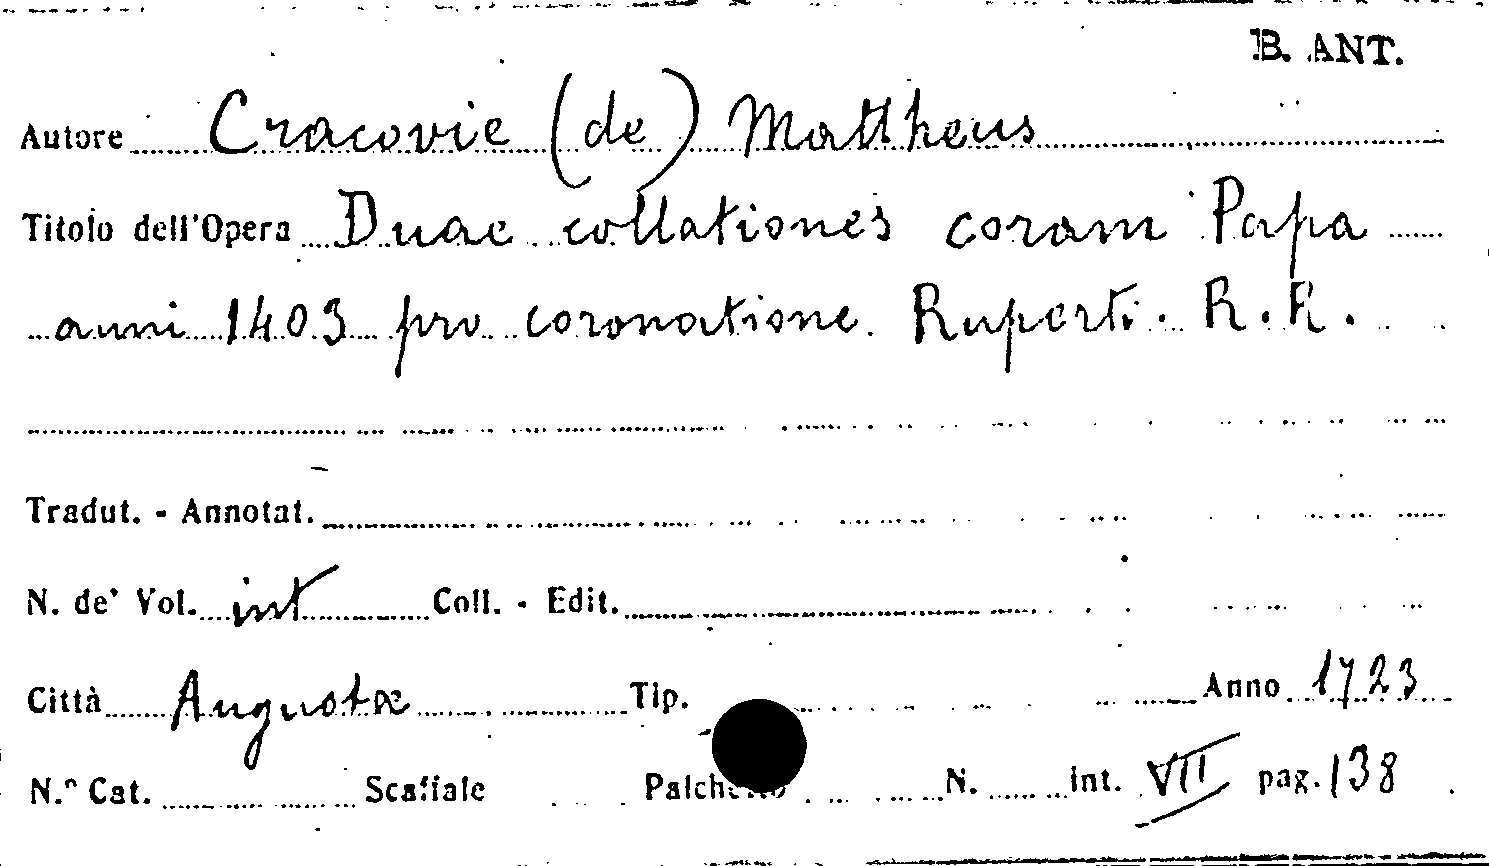 B. ANT.
Autore Cracovie (de) Mattheus
Titolo dell'Opera Duae collationes coram Papa
anni 1403 pro coronatione Ruperti. R. R.
Tradut. - Annotat.
N. de' Vol. int Coll. - Edit.
Città Augustæ Tip. Anno 1723
N.º Cat. Scaffale Palchetto N. int. VII pag. 138